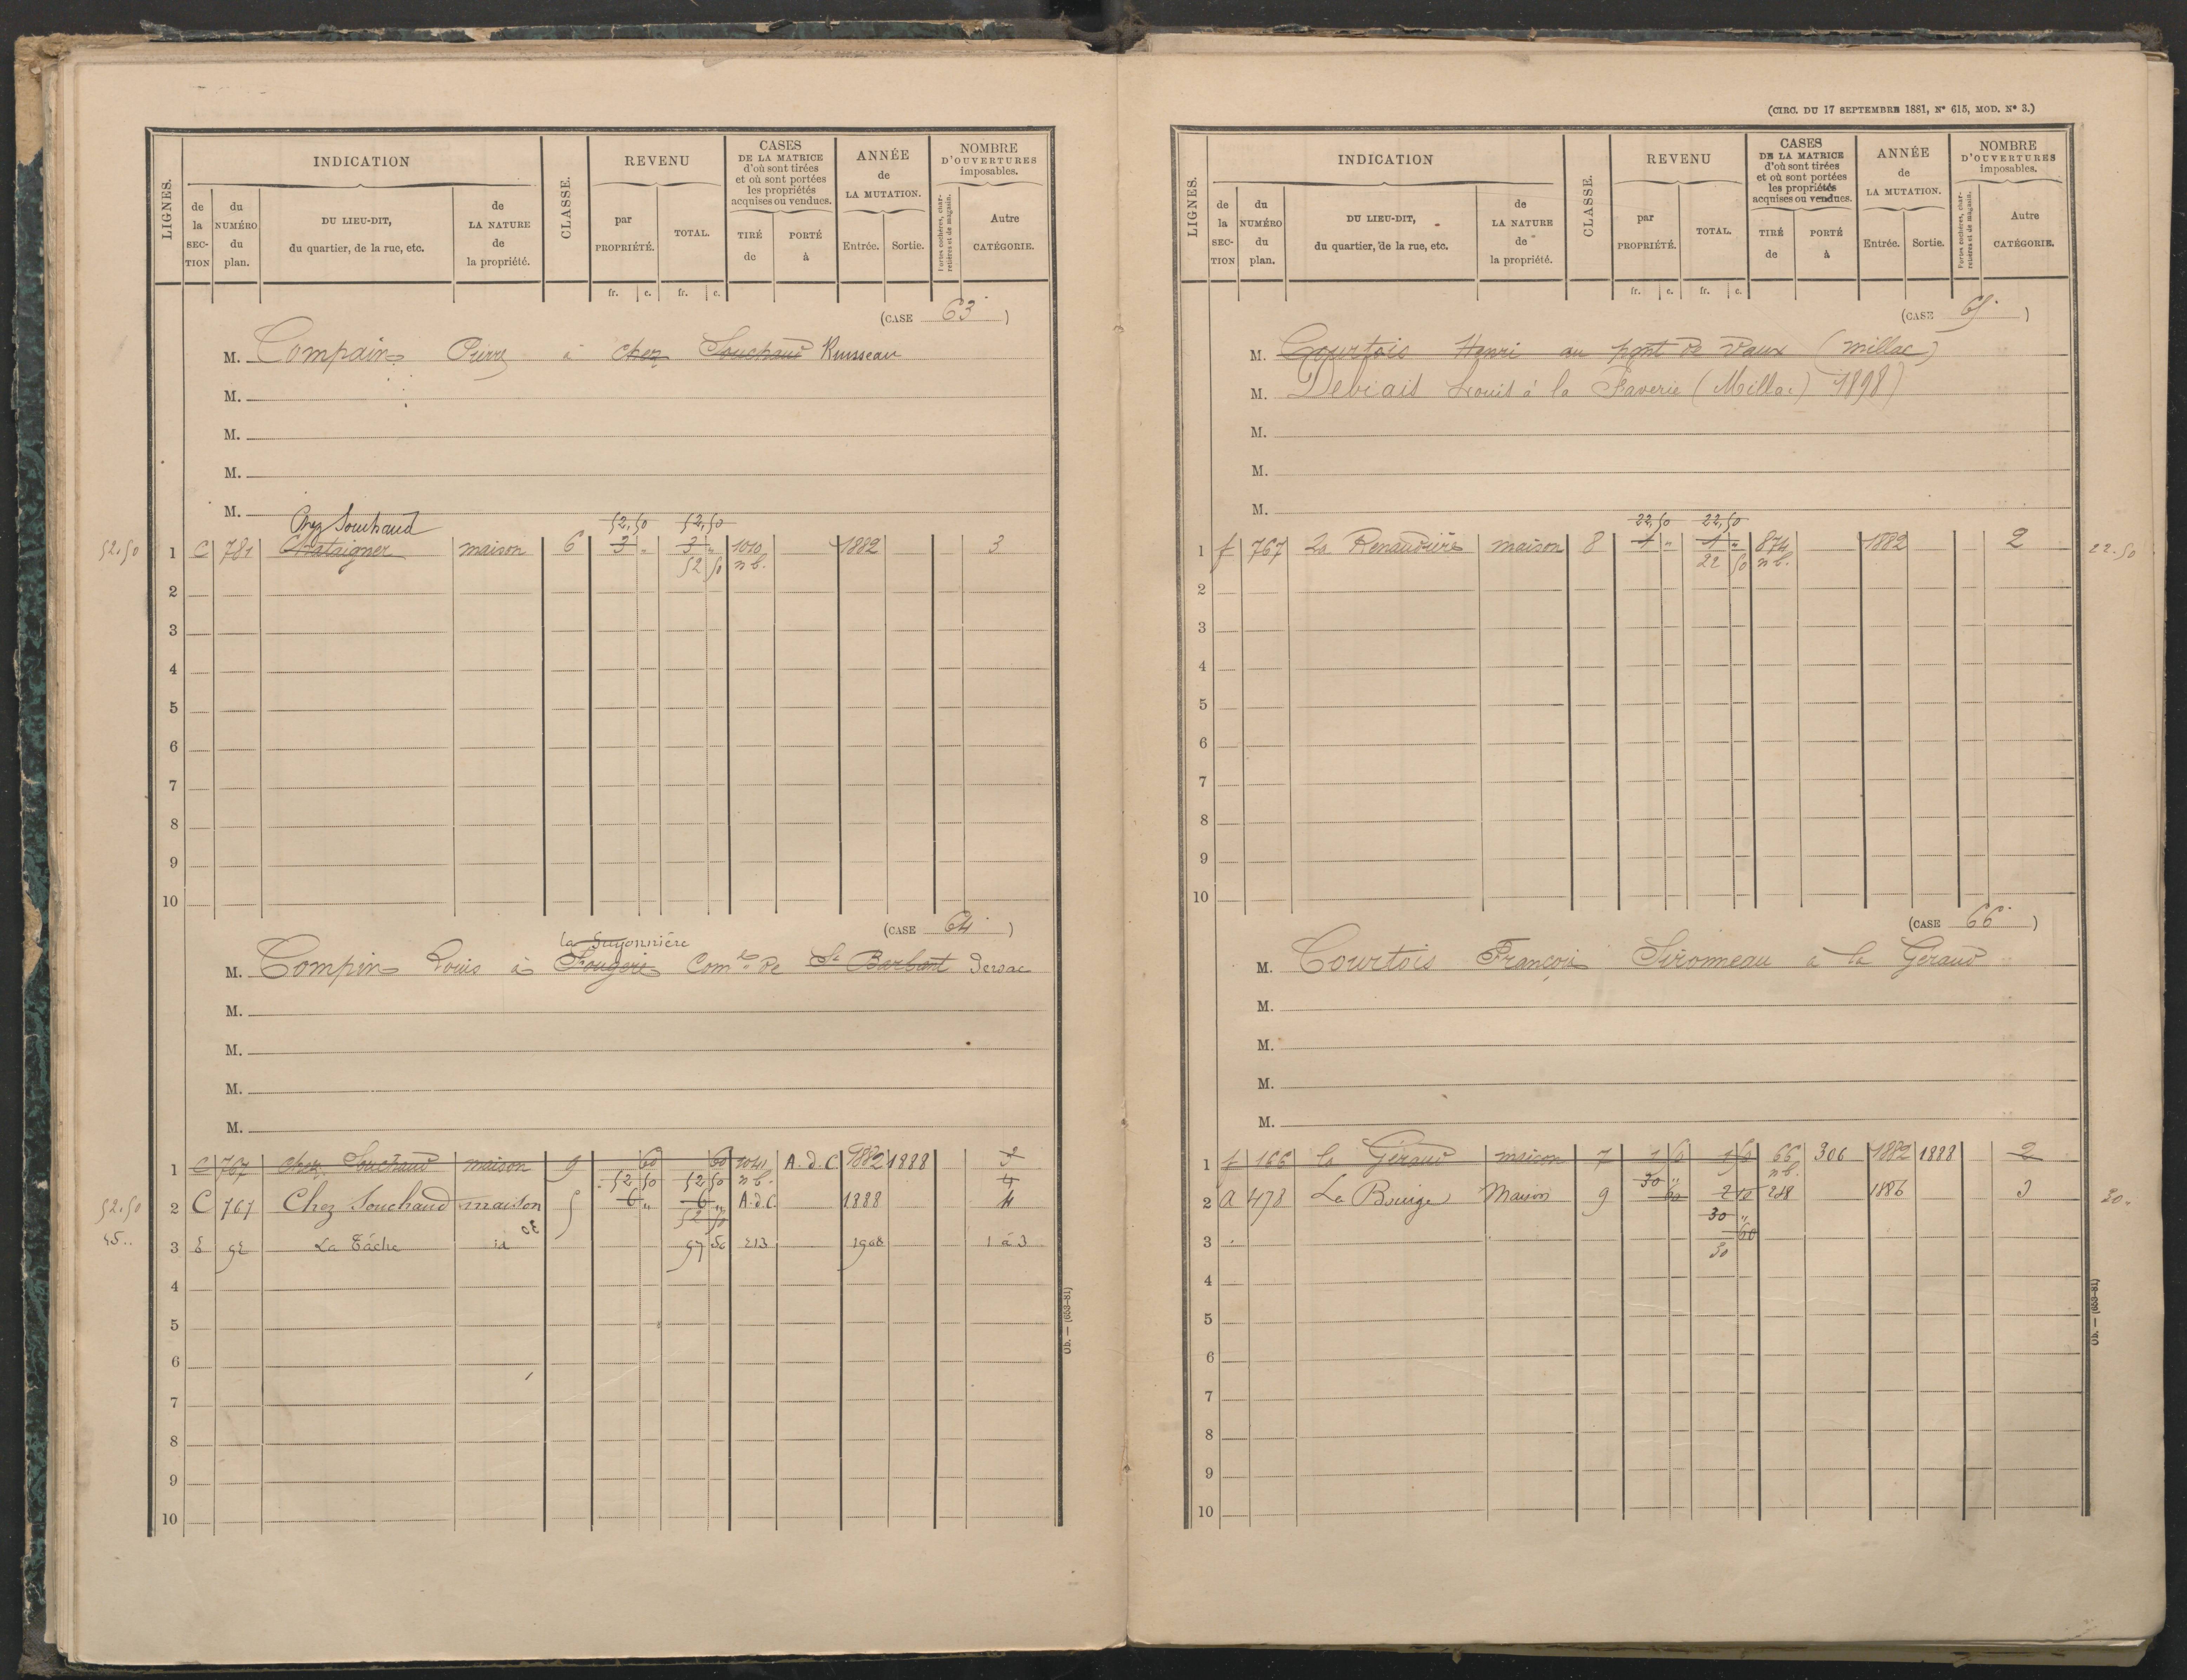 LIGNES.
INDICATION
de la SECTION
du NUMÉRO du plan.
DU LIEU-DIT, du quartier, de la rue, etc.
de LA NATURE de la propriété.
CLASSE.
REVENU
par PROPRIÉTÉ.
TOTAL.
CASES DE LA MATRICE d'où sont tirées et où sont portées les propriétés acquises ou vendues.
TIRÉ de
PORTÉ à
ANNÉE de LA MUTATION.
Entrée.
Sortie.
NOMBRE D'OUVERTURES imposables.
Portes cochères, charretières et de magasin.
Autre CATÉGORIE.
fr. c. fr. c.
(CASE 63 )
M. Compain Pierre à chez Souchaud Russeau
M.
M.
M.
M.
Chez Souchaud
52,50 52,50
52.50 1 C 781 Chataigner maison 6 3 " 3 " 1010 1882 3
52 50 n b.
2
3
4
5
6
7
8
9
10
(CASE 64 )
la Guyonnière
M. Compin Louis à Fougeré Comne de St Barbant
M.
M.
M.
M.
1 C 767 chez Souchaud maison 9 60 60 1041 A.d.C 1882 1888 3
52 50 52 50 n b. 4
52.50 2 C 767 Chez Souchaud maison 5 6 " 6 " A.d.C. 1888 4
52 50
45.. 3 E 92 La Tâche id 97 50 213 1908 1 à 3
4
5
6
7
8
9
10
Ob. — (653-81)
(CIRC. DU 17 SEPTEMBRE 1881, N° 615, MOD. N° 3.)
LIGNES.
INDICATION
de la SECTION
du NUMÉRO du plan.
DU LIEU-DIT, du quartier, de la rue, etc.
de LA NATURE de la propriété.
CLASSE.
REVENU
par PROPRIÉTÉ.
TOTAL.
CASES DE LA MATRICE d'où sont tirées et où sont portées les propriétés acquises ou vendues.
TIRÉ de
PORTÉ à
ANNÉE de LA MUTATION.
Entrée.
Sortie.
NOMBRE D'OUVERTURES imposables.
Portes cochères, charretières et de magasin.
Autre CATÉGORIE.
fr. c. fr. c.
(CASE 65 )
M. Courtois Henri au pont de Vaux (Millac)
M. Debiais Louis à la Faverie (Millac) 1898)
M.
M.
M.
22,50 22,50
1 f 767 La Renaudière maison 8 1 " 1 " 874 1882 2 22.50
22 50 n b.
2
3
4
5
6
7
8
9
10
(CASE 66 )
M. Courtois François Sironneau à la Geraud
M.
M.
M.
M.
1 f 166 la Géraud maison 7 1 50 1 50 66 306 1882 1888 2
30 " n b.
2 a 478 La Bouige Maison 9 60 2 10 288 1886 3 30.
30 "
3 60
30
4
5
6
7
8
9
10
Ob. — (653-81)